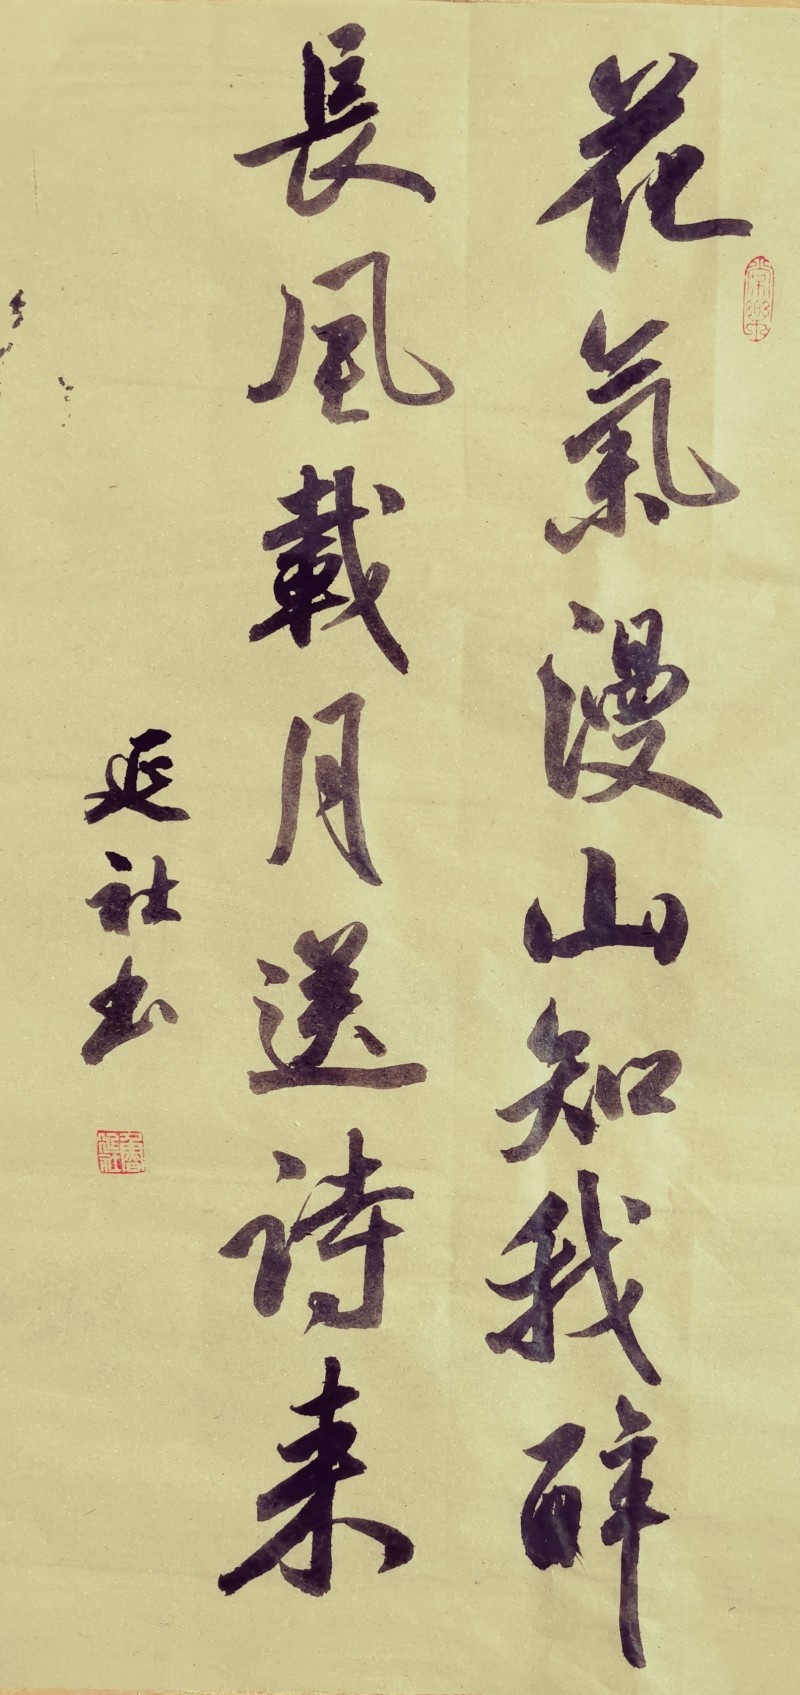 花氣漫山知我醉
長風載月送詩来
延社书
常樂